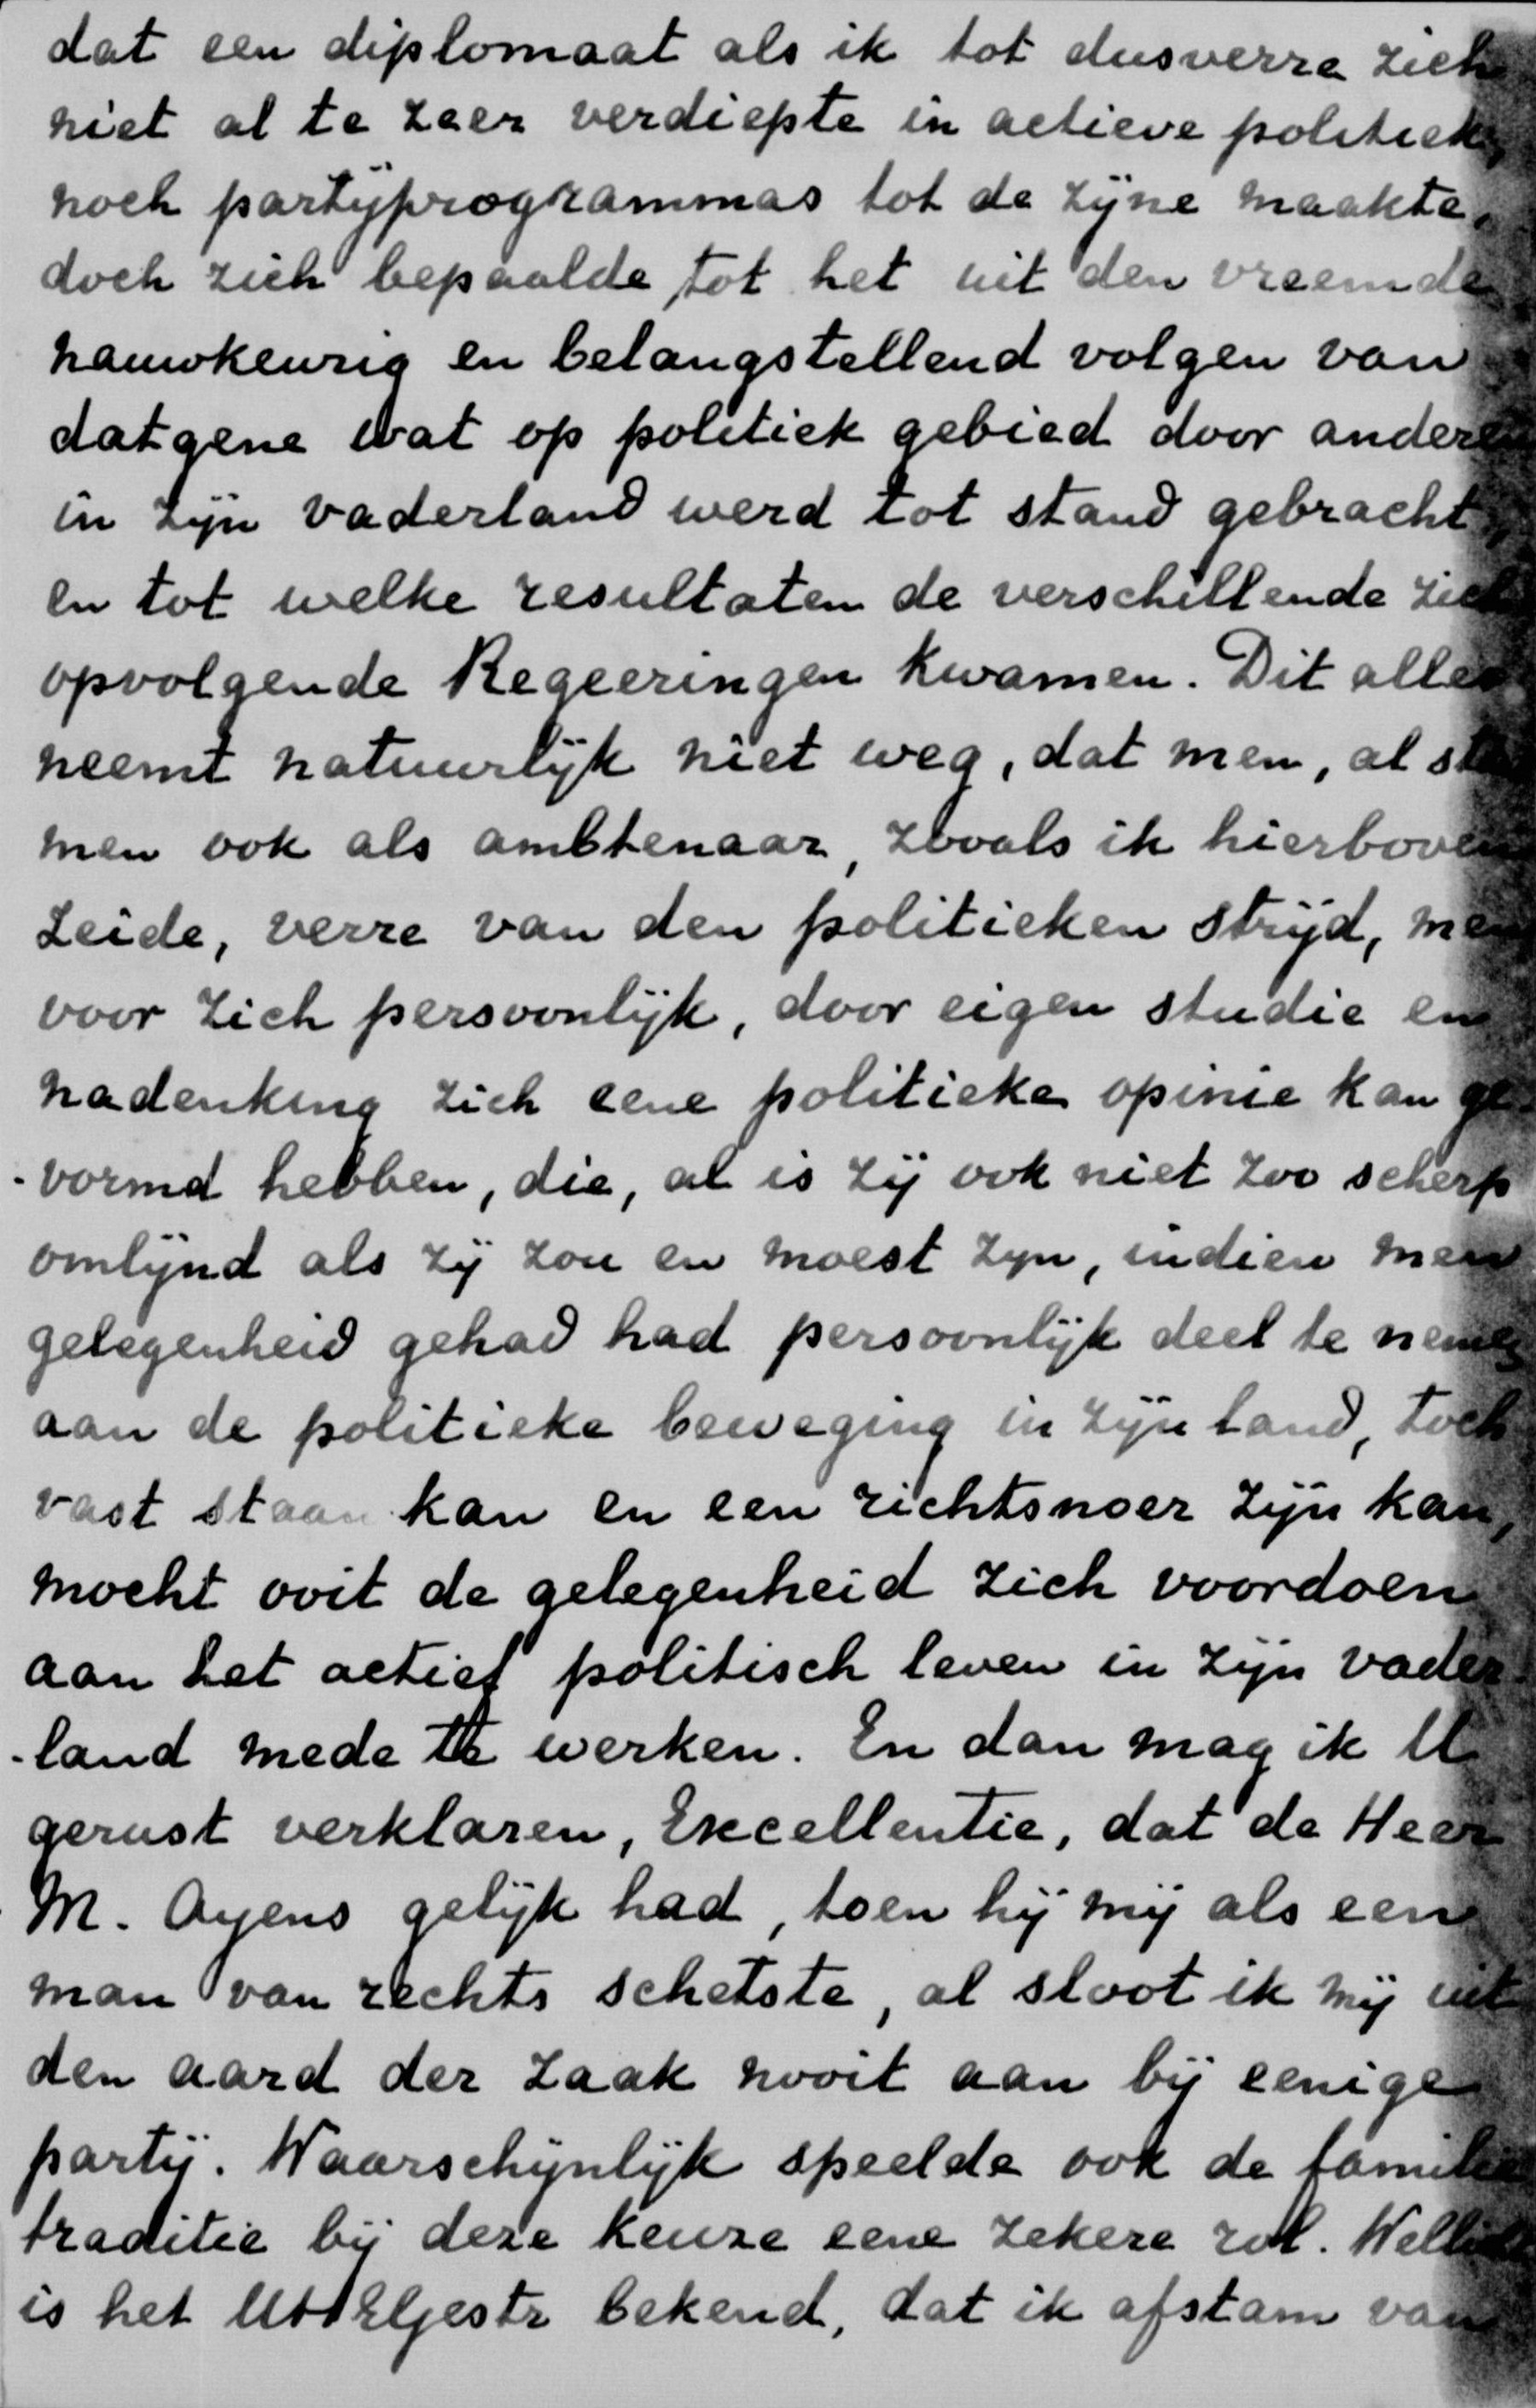 dat een diplomaat als ik tot dusverre zich
niet al te zeer verdiepte in actieve politiek,
noch partijprogrammas tot de zijne maakte,
doch zich bepaalde tot het uit den vreemde
nauwkeurig en belangstellend volgen van
datgene wat op politiek gebied door anderen
in zijn vaderland werd tot stand gebracht,
en tot welke resultaten de verschillende zich
opvolgende Regeeringen kwamen. Dit alles
neemt natuurlijk niet weg, dat men, al
men ook als ambtenaar, zooals ik hierboven
zeide, verre van den politieken strijd, men
voor zich persoonlijk, door eigen studie en
nadenking zich eene politieke opinie kan ge-
-vormd hebben, die, al is zij ook niet zoo scherp
omlijnd als zij zou en moest zijn, indien men
gelegenheid gehad had persoonlijk deel te nemen
aan de politieke beweging in zijn land, toch
vast staan kan en een richtsnoer zijn kan,
mocht ooit de gelegenheid zich voordoen
aan het actief politisch leven in zijn vader-
-land mede te werken. En dan mag ik U
gerust verklaren, Excellentie, dat de Heer
M. Oyens gelijk had, toen hij mij als een
man van rechts schetste, al sloot ik mij uit
den aard der zaak nooit aan bij eenige
partij. Waarschijnlijk speelde ook de familie
traditie bij deze keuze eene zekere rol. Wellicht
is het bekend, dat ik afstam van